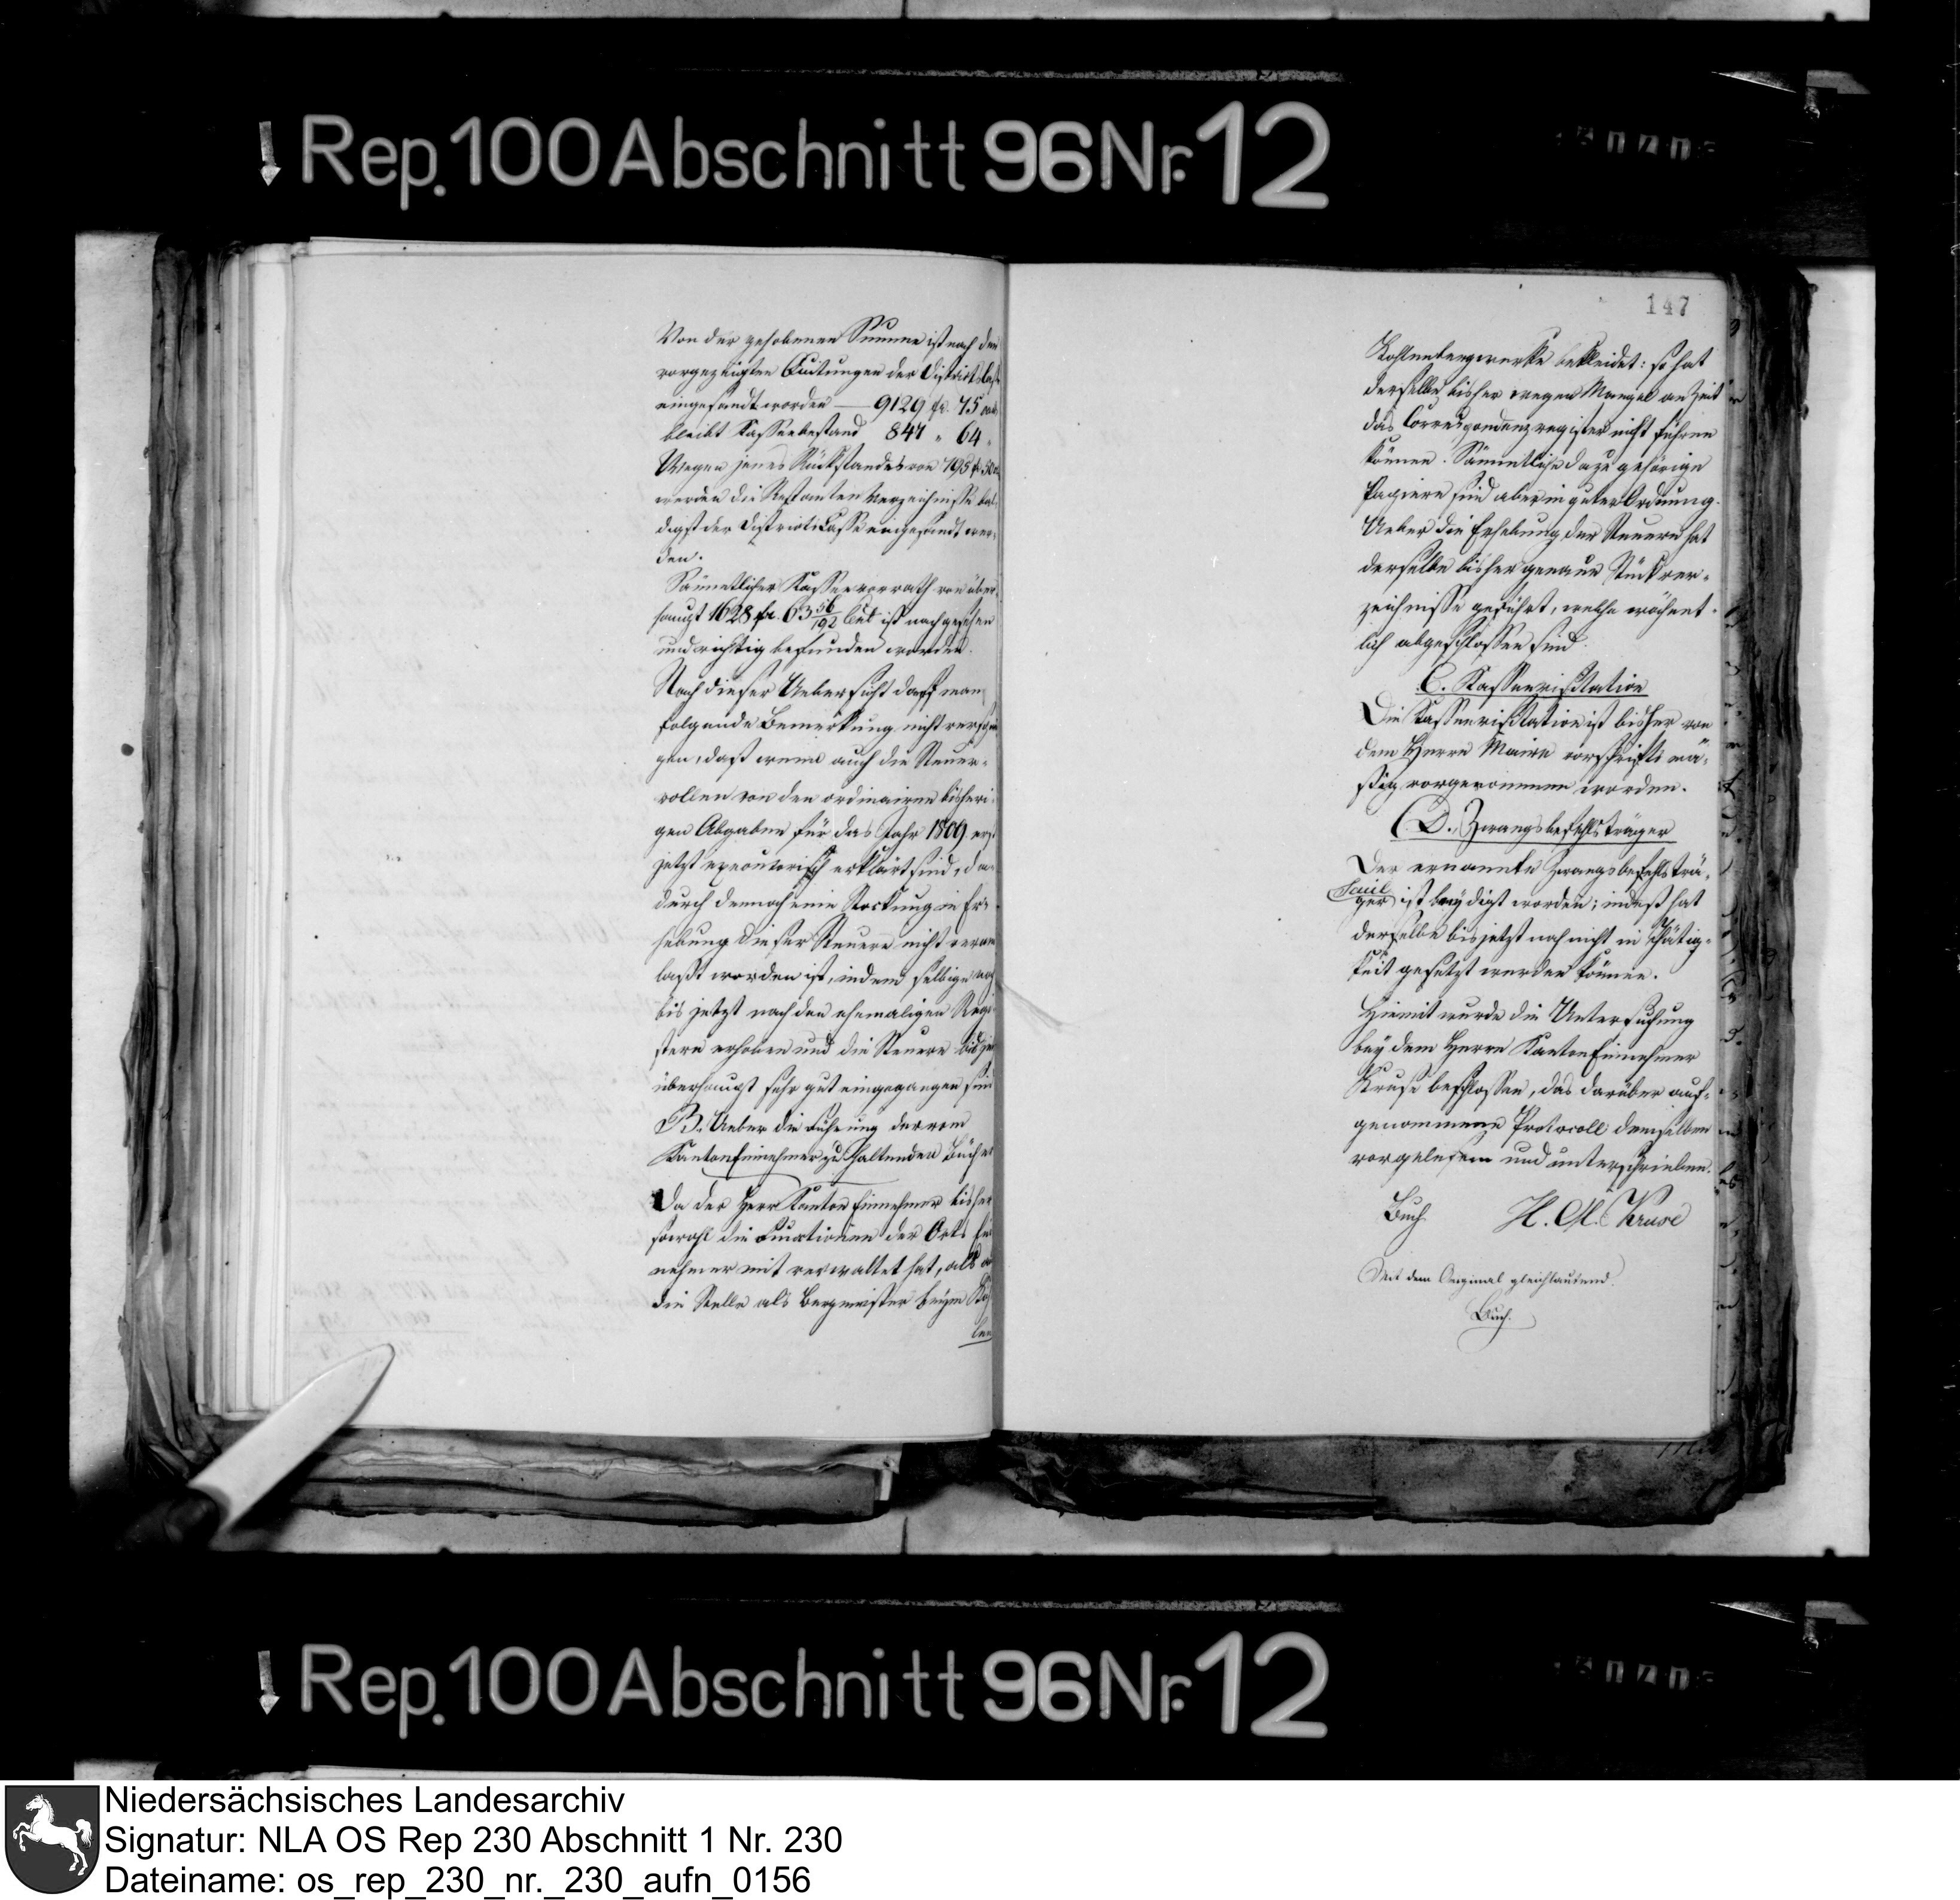 Rep. 100 Abschnitt 96 Nr. 12
Von der gehobenen Summe ist nach den
vorgezeigten Quitungen der Districts
eingesandt worden — 9129 fr. 75
bleibt Kassenbestand 847 " 64 "
Wegen jenes Rückstandes von 795 fr. 50
werden die Restanten Verzeichnisse bal-
digst der Districts Casse eingesandt wer-
den.
Sämmtlicher Kassenvorrath von über-
haupt 1628 fr. 63 56/192 Cent ist nachgesehen
und richtig befunden worden.
Nach dieser Uebersicht darf man
folgende Bemerkung nicht
gen, daß wenn auch die Steuer-
rollen von den ordinairen bisheri-
gen Abgaben für das Jahr 1809 erst
jetzt executorisch erklärt sind, da-
durch dennoch eine Stockung in Er-
hebung dieser Steuern nicht veran
laßt worden ist, indem selbige
bis jetzt nach den ehemaligen Regi
stern erhoben und die Steuern
überhaupt sehr gut eingegangen sind
B. Ueber die Führung der vom
Kanton Einnehmer zu haltenden Bücher
Da der Herr Kanton Einnehmer bisher
sowohl die Functionen der Orts Ein
nehmer mit verwaltet hat, als
die Stelle als Bergmeister beym Koh
len
147
Kohlenbergwerke bekleidet: so hat
derselbe bisher wegen Mangel an Zeit
das Correspondenzregister nicht führen
können. Sämmtliche dazu gehörige
Papiere sind aber in guter Ordnung.
Ueber die Erhebung der Steuern hat
derselbe bisher genaue Stückver-
zeichnisse geführt, welche wöchent-
lich abgeschlossen sind.
C. Kassenvisitation
Die Kassenvisitation ist bisher von
dem Herrn Maire vorschrifts mä-
ßig vorgenommen worden.
D. Zwangsbefehlsträger
Der ernannte Zwangsbefehlsträ-
ger ist beeydigt worden; indeß hat
derselbe bis jetzt noch nicht in Thätig-
keit gesetzt werden können.
Hiemit wurde die Untersuchung
bey dem Herrn Kanton Einnehmer
Kruse beschlossen, das darüber auf-
genommene Protocoll demselben
vorgelesen und unterschrieben.
Buch H. M. Kruse
Mit dem Original gleichlautend.
Buch.
Rep. 100 Abschnitt 96 Nr. 12
Niedersächsisches Landesarchiv
Signatur: NLA OS Rep 230 Abschnitt 1 Nr. 230
Dateiname: os_rep_230_nr._230_aufn_0156